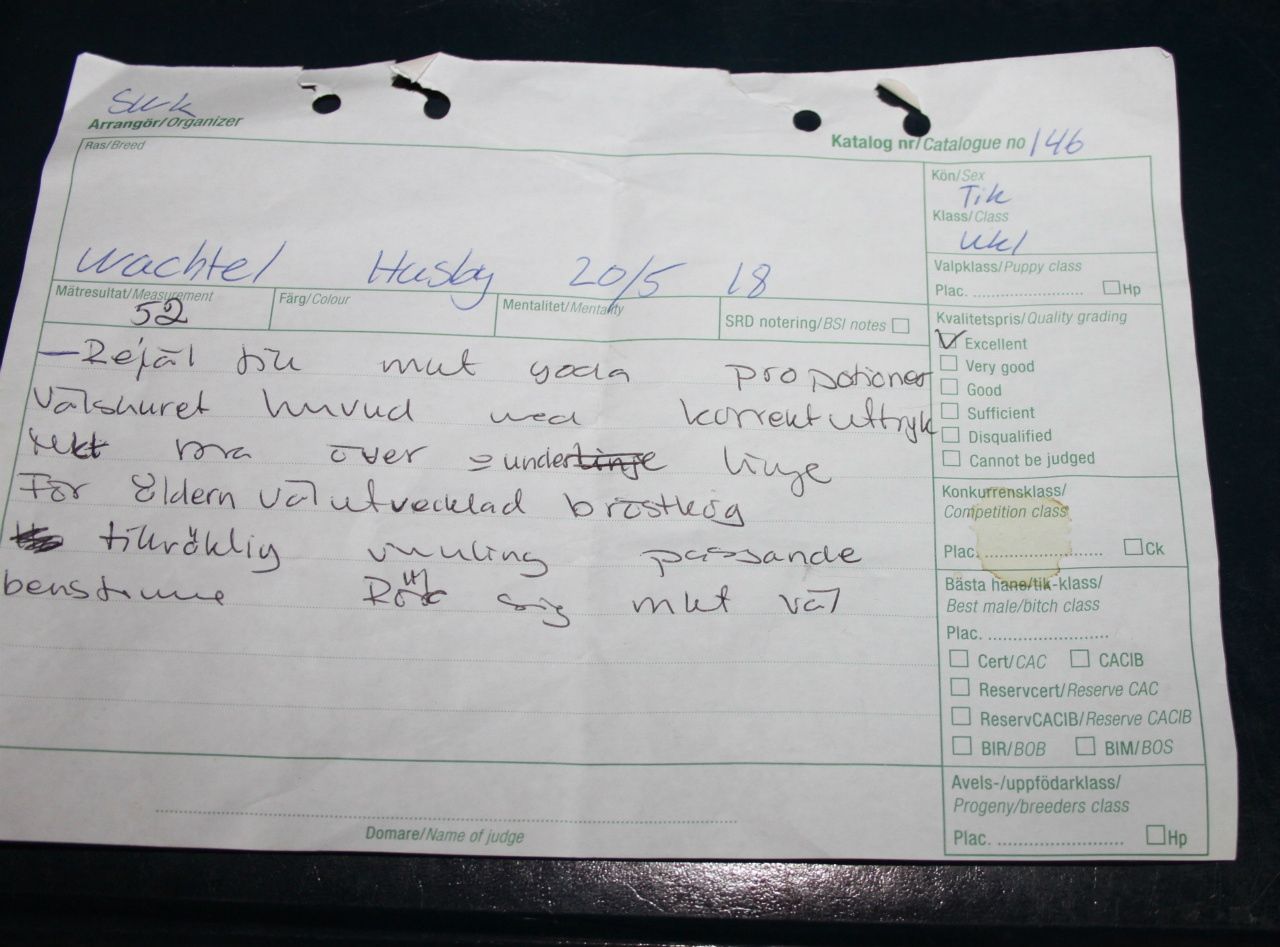 SWK
Arrangör/Organizer
Katalog nr/Catalogue no 146
Ras/Breed
Wachtel Husby 20/5 18
Kön/Sex
Tik
Klass/Class
Ukl
Valpklass/Puppy class
Plac. ........................ Hp
Mätresultat/Measurement
52
Färg/Colour
Mentalitet/Mentality
SRD notering/BSI notes
Kvalitetspris/Quality grading
Excellent
Very good
Good
Sufficient
Disqualified
Cannot be judged
—Rejäl tik mkt goda propotioner
Välskuret huvud med korrekt uttryk
mkt bra över = underlinje linje
För åldern väl utvecklad bröstkog
tillräklig vinkling passande
benstomme Rör sig mkt väl
Konkurrensklass/
Competition class
Plac. ........................ Ck
Bästa hane/tik-klass/
Best male/bitch class
Plac. ........................
Cert/CAC CACIB
Reservcert/Reserve CAC
ReservCACIB/Reserve CACIB
BIR/BOB BIM/BOS
Avels-/uppfödarklass/
Progeny/breeders class
Plac. ........................ Hp
Domare/Name of judge